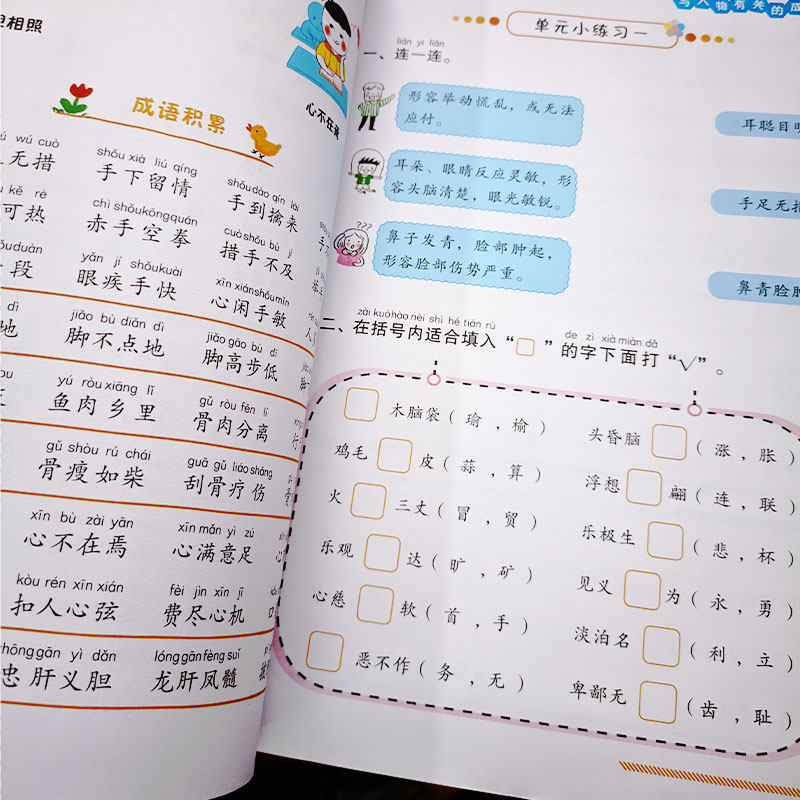 胆相照
心不在焉
成语积累
wú cuò shǒu xià liú qíng shǒu dào qín lái
无措 手下留情 手到擒来
kě rè chì shǒu kōng quán cuò shǒu bù jí
可热 赤手空拳 措手不及
duàn yǎn jí shǒu kuài xīn xián shǒu mǐn
段 眼疾手快 心闲手敏
dì jiǎo bù diǎn dì jiǎo gāo bù dī
地 脚不点地 脚高步低
yú ròu xiāng lǐ gǔ ròu fēn lí
鱼肉乡里 骨肉分离
gǔ shòu rú chái guā gǔ liáo shāng
骨瘦如柴 刮骨疗伤
xīn bù zài yān xīn mǎn yì zú
心不在焉 心满意足
kòu rén xīn xián fèi jìn xīn jī
扣人心弦 费尽心机
zhōng gān yì dǎn lóng gān fèng suǐ
忠肝义胆 龙肝凤髓
与人物有关的成
单元小练习一
lián yi lián
一、连一连。
形容举动慌乱，或无法
应付。
耳聪目明
耳朵、眼睛反应灵敏，形
容头脑清楚，眼光敏锐。
手足无措
???
鼻子发青，脸部肿起，
形容脸部伤势严重。
鼻青脸肿
zài kuò hào nèi shì hé tián rù de zì xià miàn dǎ
二、在括号内适合填入“□”的字下面打“√”。
□木脑袋（瑜，榆） 头昏脑□（涨，胀）
鸡毛□皮（蒜，算） 浮想□翩（连，联）
火□三丈（冒，贸） 乐极生□（悲，杯）
乐观□达（旷，矿） 见义□为（永，勇）
心慈□软（首，手） 淡泊名□（利，立）
□恶不作（务，无） 卑鄙无□（齿，耻）